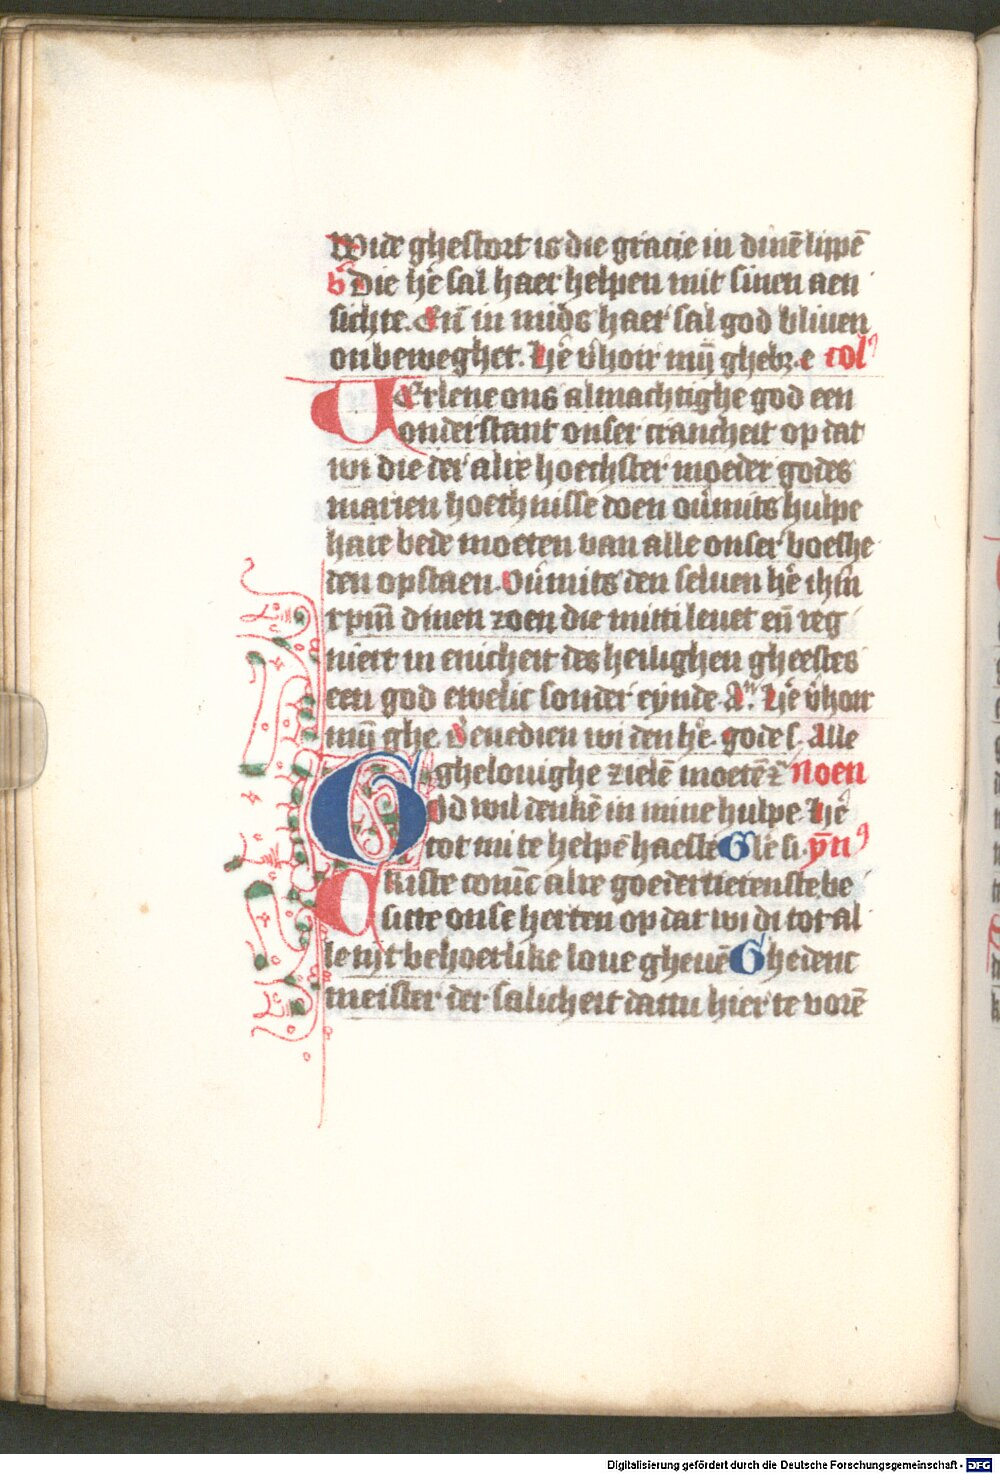 Wide ghestort is die gracie in dinē lippē
v̄ Die hē sal haer helpen mit sinen aen
sichte. Eñ in mids haer sal god bliuen
onbeweghet. Hē v̄hoir mijn ghebz. e col'
VErlene ons almachtighe god een
onderstant onser crancheit op dat
wi die der alre hoechster moeder godes
marien hoechnisse doen oūmits hulpe
hare bede moeten van alle onser boeshe
den opstaen. Oūmits den seluen hē ihm̄
xpm̄ dinen zoen die mitti leuet eñ reg
niert in enicheit des heilighen gheestes
een god ewelic sonder eynde. Am̄. Hē v̄hoir
mijn ghe. Benedien wi den hē. gode s. Alle
ghelouighe zielē moetē z̄ Noen
GOd wil denkē in mine hulpe Hē
tot mi te helpē haeste Gle si. ȳn'
Kriste comt alre goedertierenste be
sitte onse herten op dat wi di tot al
le tijt behoerlike loue gheuē Ghedenc
meister der salicheit dattu hier te vorē
Digitalisierung gefördert durch die Deutsche Forschungsgemeinschaft - DFG